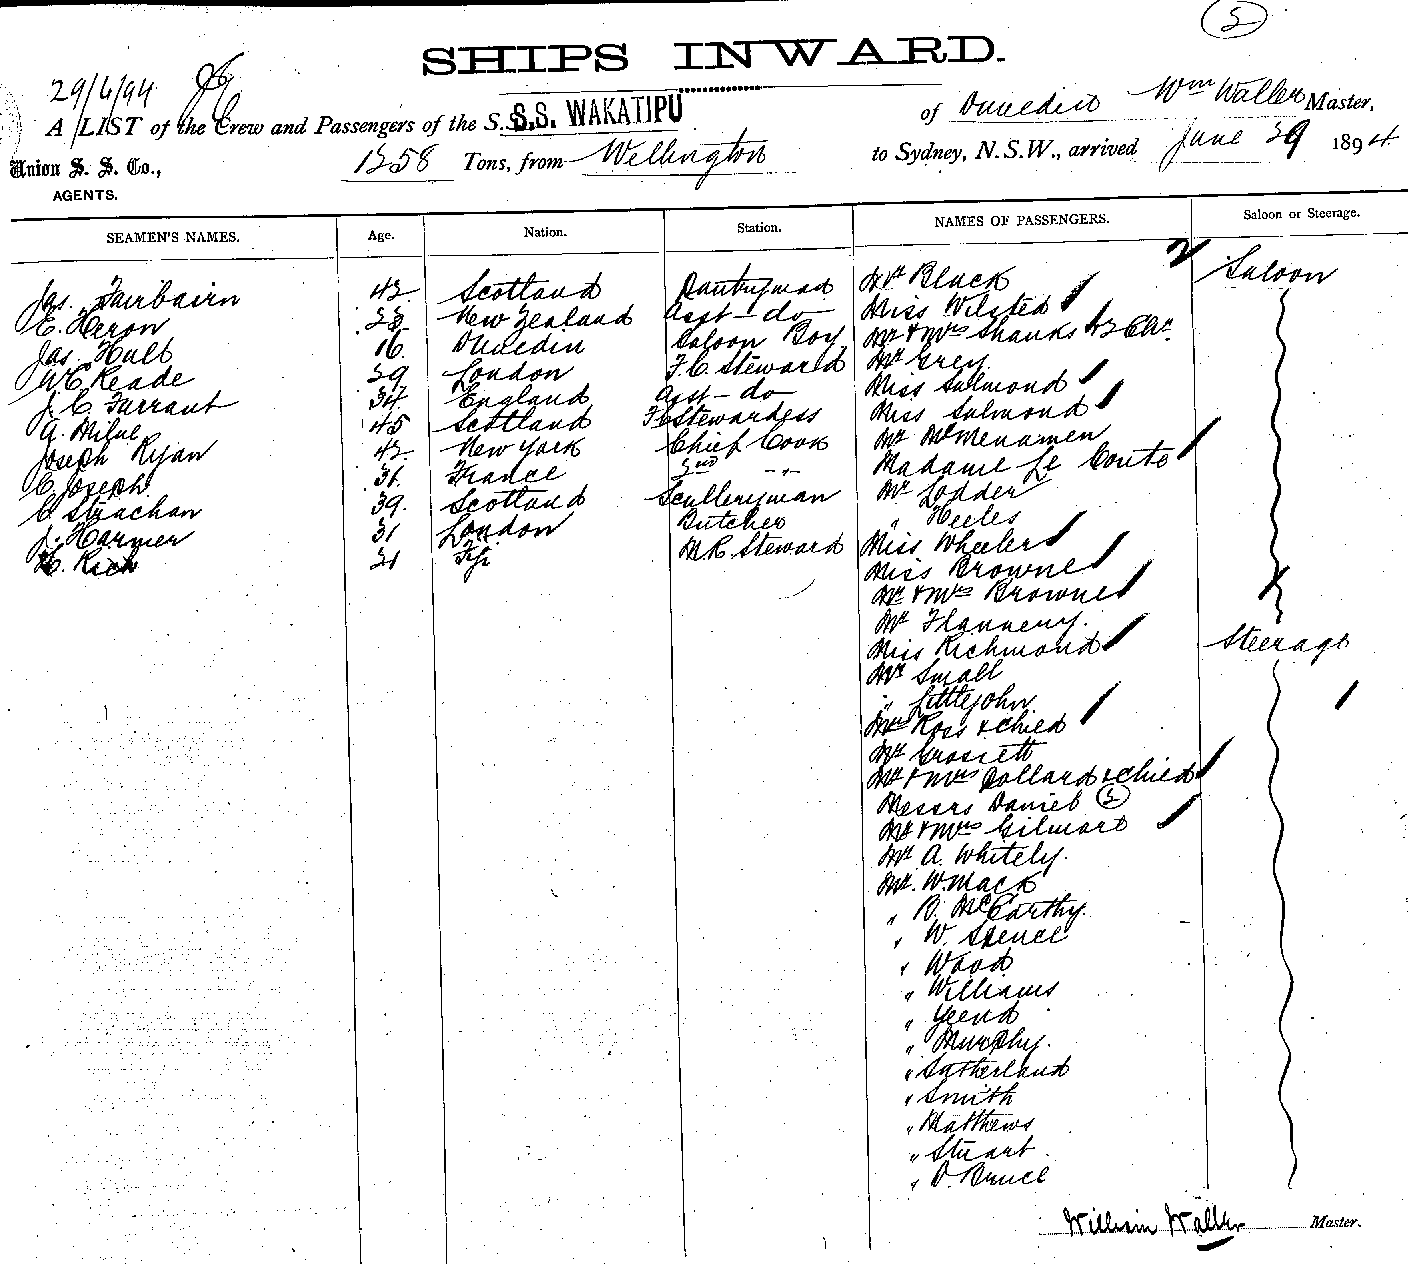 5
SHIPS INWARD.
29/6/94
A LIST of the Crew and Passengers of the S.S. S.S. WAKATIPU of Dunedin Wm Waller Master,
Union S. S. Co., 1258 Tons, from Wellington to Sydney, N.S.W., arrived June 29 1894
AGENTS.
SEAMEN'S NAMES. Age. Nation. Station. NAMES OF PASSENGERS. Saloon or Steerage.
Jas. Fairbairn 42 Scotland Pantryman Mr Black Saloon
E. Heron 23 New Zealand Asst - do Miss Wilsted
Jas. Hull 16 Dunedin Saloon Boy Mr & Mrs Shanks & 2 Chn.
W. C. Reade 29 London F.C. Steward Mr Grey
J. C. Farrant 34 England Asst - do Miss Salmond
A. Milne 45 Scotland F.C. Stewardess Miss Salmond
Joseph Ryan 42 New York Chief Cook Mr McMenamen
C. Joseph 31. France 2nd -"- Madame Le Conte
C. Strachan 39. Scotland Sculleryman Mr Lodder
J. Harmer 31 London Butcher " Heeles
H. Rich 21 Fiji M.R. Steward Miss Wheeler
Miss Browne
Mr & Mrs Browne
Mr Flannery.
Miss Richmond Steerage
Mr Small
" Littlejohn
Mrs Ross & child
Mr Grossett
Mr & Mrs Pollard & child
Messrs Daniel (2)
Mr & Mrs Gilmore
Mr A. Whitely.
Mr. W. Mack
" B. McCarthy.
" W. Spence
" Wood
" Williams
" Yeend
" Murphy.
" Sutherland
" Smith
" Matthews
" Stuart.
" D. Bruce
William Waller Master.